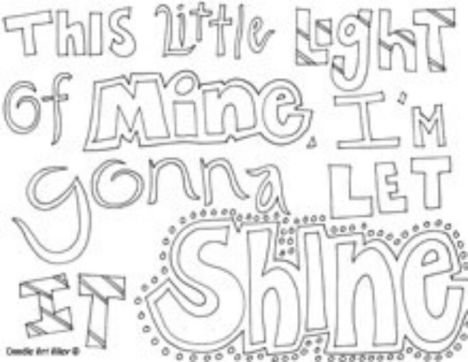 THIS Little LIGHT
Of Mine, I'M
gonna LET
IT Shine
Doodle Art Alley ©